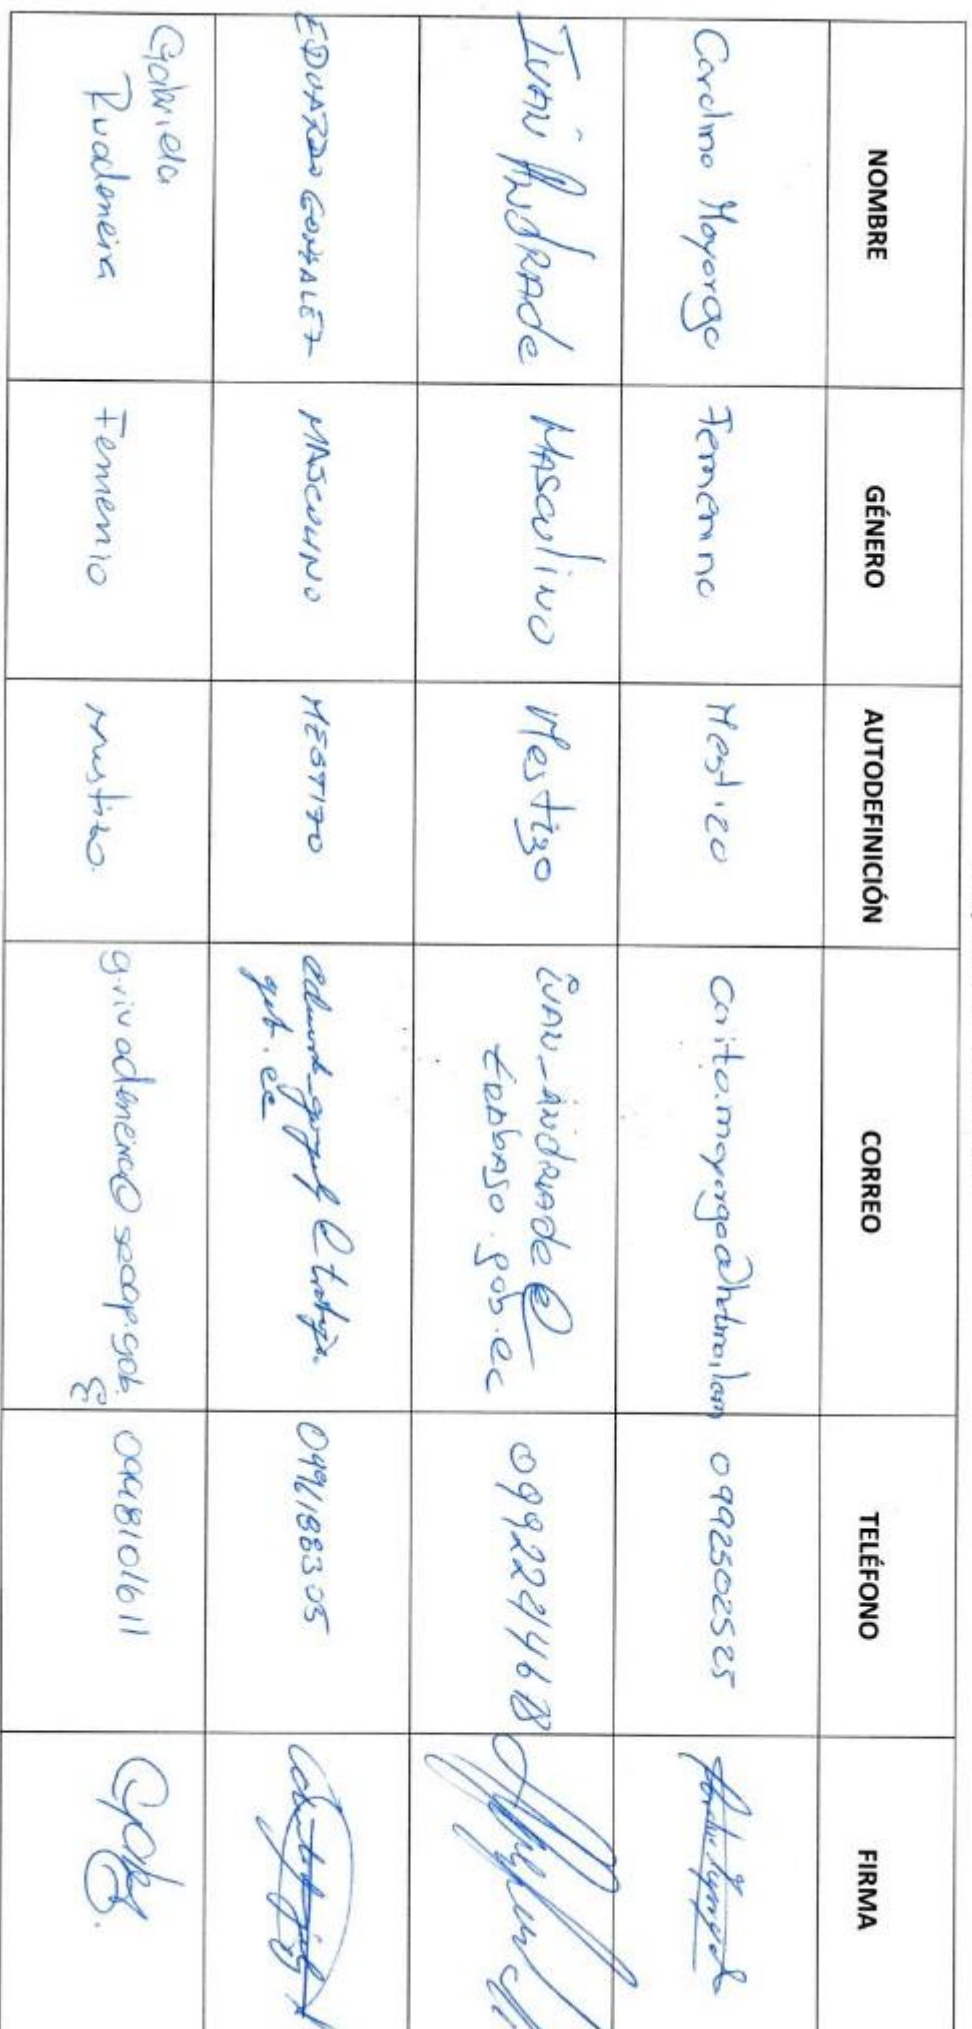 NOMBRE GÉNERO AUTODEFINICIÓN CORREO TELÉFONO FIRMA
Carolina Mayorga Femenino Mestizo carito.mayorga@hotmail.com 0992502525
IVÁN ANDRADE MASCULINO Mestizo IVAN_ANDRADE@
TRABAJO.gob.ec 0992294678
EDUARDO GONZALEZ MASCULINO MESTIZO @trabajo.
gob.ec 0991188305
Gabriela
Rivadeneira Femenino mestizo g.rivadeneira@secap.gob.
ec 0998101611